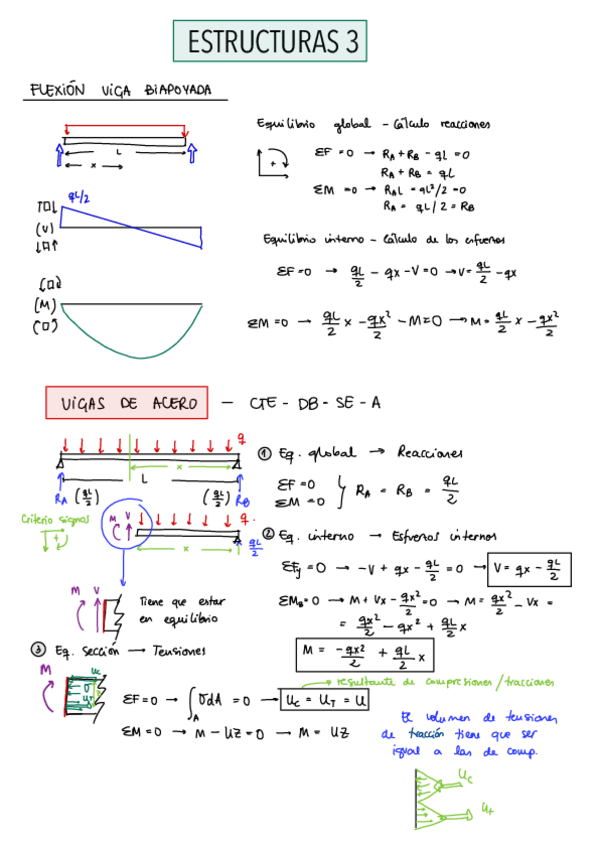 ESTRUCTURAS 3
FLEXIÓN VIGA BIAPOYADA
Equilibrio global - Cálculo reacciones
L
x
ΣF = 0 → RA + RB - qL = 0
RA + RB = qL
ΣM = 0 → RAL - qL²/2 = 0
RA = qL/2 = RB
qL/2
(V)
Equilibrio interno - Cálculo de los esfuerzos
ΣF = 0 → qL/2 - qx - V = 0 → V = qL/2 - qx
(M)
ΣM = 0 → qL/2 x - qx²/2 - M = 0 → M = qL/2 x - qx²/2
VIGAS DE ACERO - CTE - DB - SE - A
q
x
L
RA (qL/2) (qL/2) RB
① Eq. global → Reacciones
ΣF = 0
ΣM = 0 } RA = RB = qL/2
Criterio signos
+
M V
q.
x
qL/2
② Eq. interno → Esfuerzos internos
ΣFy = 0 → -V + qx - qL/2 = 0 → V = qx - qL/2
M V
Tiene que estar
en equilibrio
ΣMB = 0 → M + Vx - qx²/2 = 0 → M = qx²/2 - Vx =
= qx²/2 - qx² + qL/2 x
M = -qx²/2 + qL/2 x
③ Eq. sección → Tensiones
resultante de compresiones/tracciones
M
Uc
σ
UT
ΣF = 0 → ∫A σdA = 0 → Uc = UT = U
ΣM = 0 → M - UZ = 0 → M = UZ
El volumen de tensiones
de tracción tiene que ser
igual a las de comp.
Uc
Ut